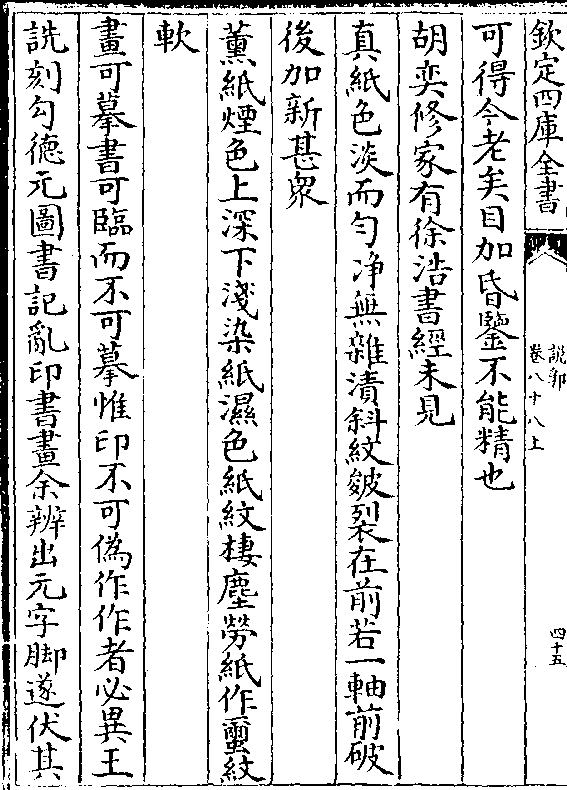 欽定四庫全書
說郛
卷八十八上
四十五
可得今老矣目加昏鑒不能精也
胡奕修家有徐浩書經未見
真紙色淡而勻净無雜漬斜紋皴裂在前若一軸前破
後加新甚衆
薰紙煙色上深下淺染紙濕色紙紋棲塵勞紙作蠒紋
軟
畫可摹書可臨而不可摹惟印不可偽作作者必異王
詵刻勾德元圖書記亂印書畫余辨出元字脚遂伏其